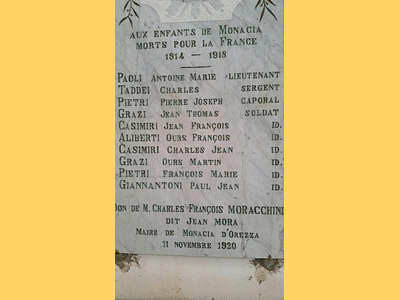 AUX ENFANTS DE MONACIA
MORTS POUR LA FRANCE
1914 — 1918
PAOLI ANTOINE MARIE LIEUTENANT
TADDEI CHARLES SERGENT
PIETRI PIERRE JOSEPH CAPORAL
GRAZI JEAN THOMAS SOLDAT
CASIMIRI JEAN FRANÇOIS ID.
ALIBERTI OURS FRANÇOIS ID.
CASIMIRI CHARLES JEAN ID.
GRAZI OURS MARTIN ID.
PIETRI FRANÇOIS MARIE ID.
GIANNANTONI PAUL JEAN ID.
DON DE M. CHARLES FRANÇOIS MORACCHINI
DIT JEAN MORA
MAIRE DE MONACIA D'OREZZA
11 NOVEMBRE 1920